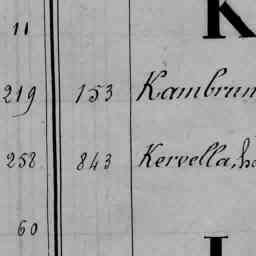 K
11
219 153 Kambrun
258 843 Kervella, h
60